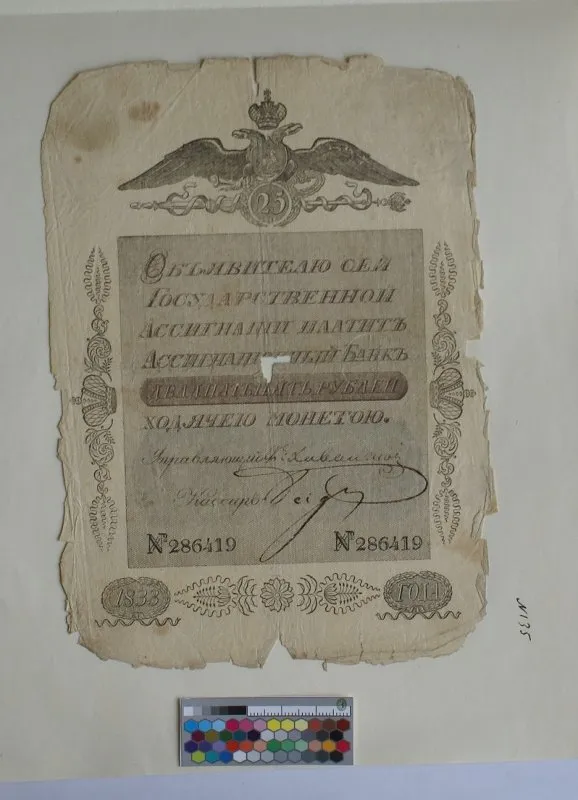 25
ОБЪЯВИТЕЛЮ СЕЙ
ГОСУДАРСТВЕННОЙ
АССИГНАЦИИ ПЛАТИТЪ
АССИГНАЦІОННЫЙ БАНКЪ
ДВАДЦАТЬПЯТЬ РУБЛЕЙ
ХОДЯЧЕЮ МОНЕТОЮ.
Управляющий
Кассиръ
№286419 №286419
1833 ГОДА
N 135